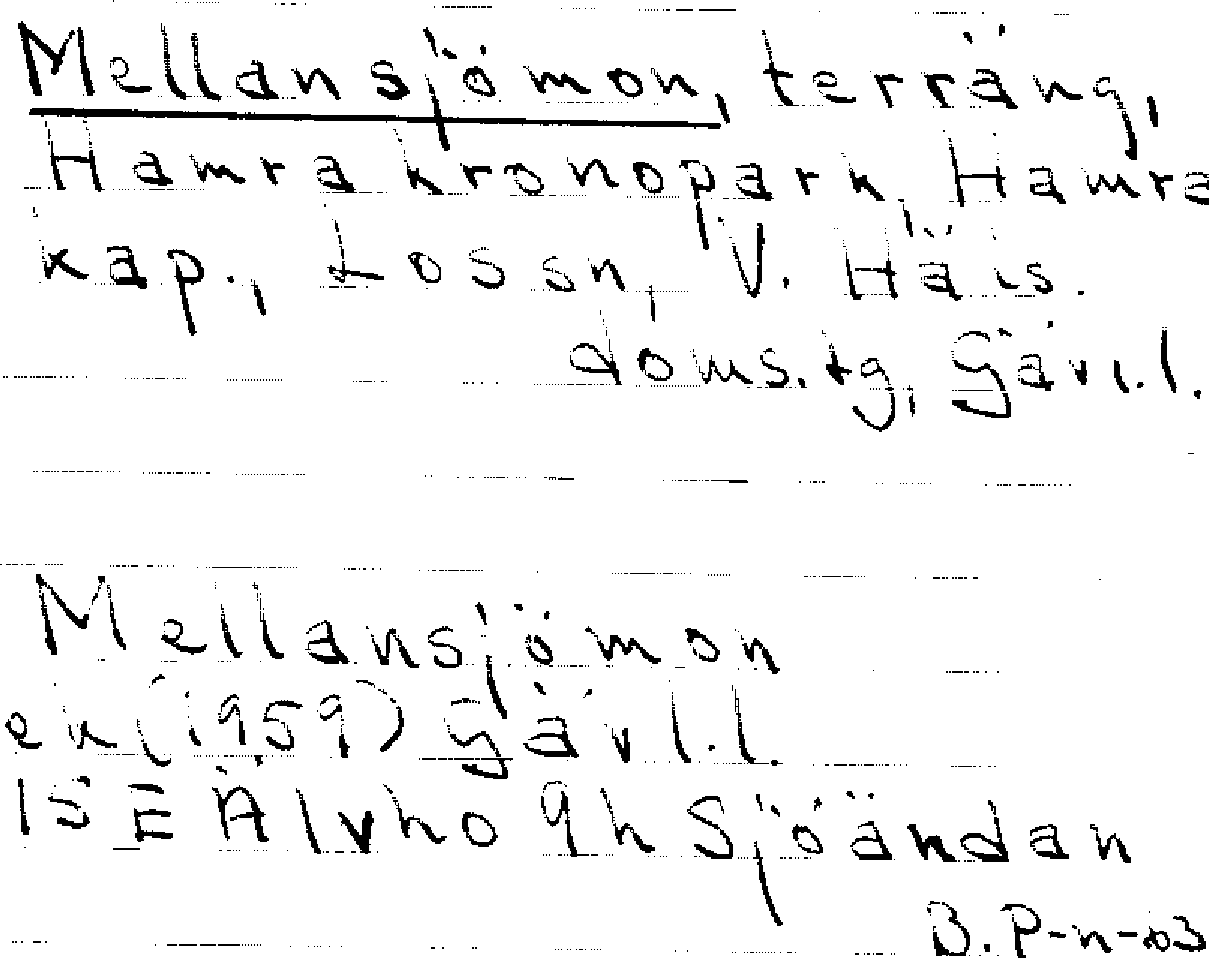 Mellansjömon, terräng,
Hamra kronopark, Hamra
kap., Lossn, V. Häls.
doms.tg, Gävl.l.
Mellansjömon
ek (1959) Gävl.l.
15E Älvho 9h Sjöändan
B. P-n-03